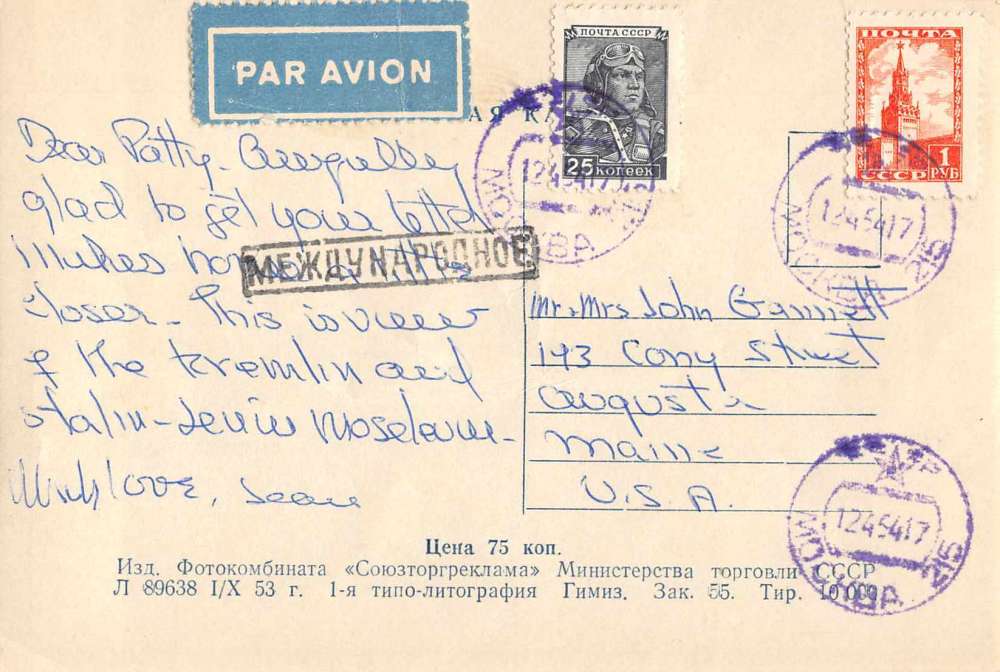 PAR AVION
ПОЧТА СССР
25 КОПЕЕК
ПОЧТА
СССР
1 РУБ
АЯ КА
МОСКВА
1245417
МОСКВА
1245417
25
Dear Patty.
glad to get your letter
Makes home a
МЕЖДУНАРОДНОЕ
closer - This is view
of the Kremlin and
Stalin-Lenin Mosoleum -
Much love, Jean
Mr. Mrs John Gannett
193 Cony Street
Augusta
Maine
U.S.A.
МОСКВА
1245417
25
Цена 75 коп.
Изд. Фотокомбината «Союзторгреклама» Министерства торговли СССР
Л 89638 I/X 53 г. 1-я типо-литография Гимиз. Зак. 55. Тир. 10 000